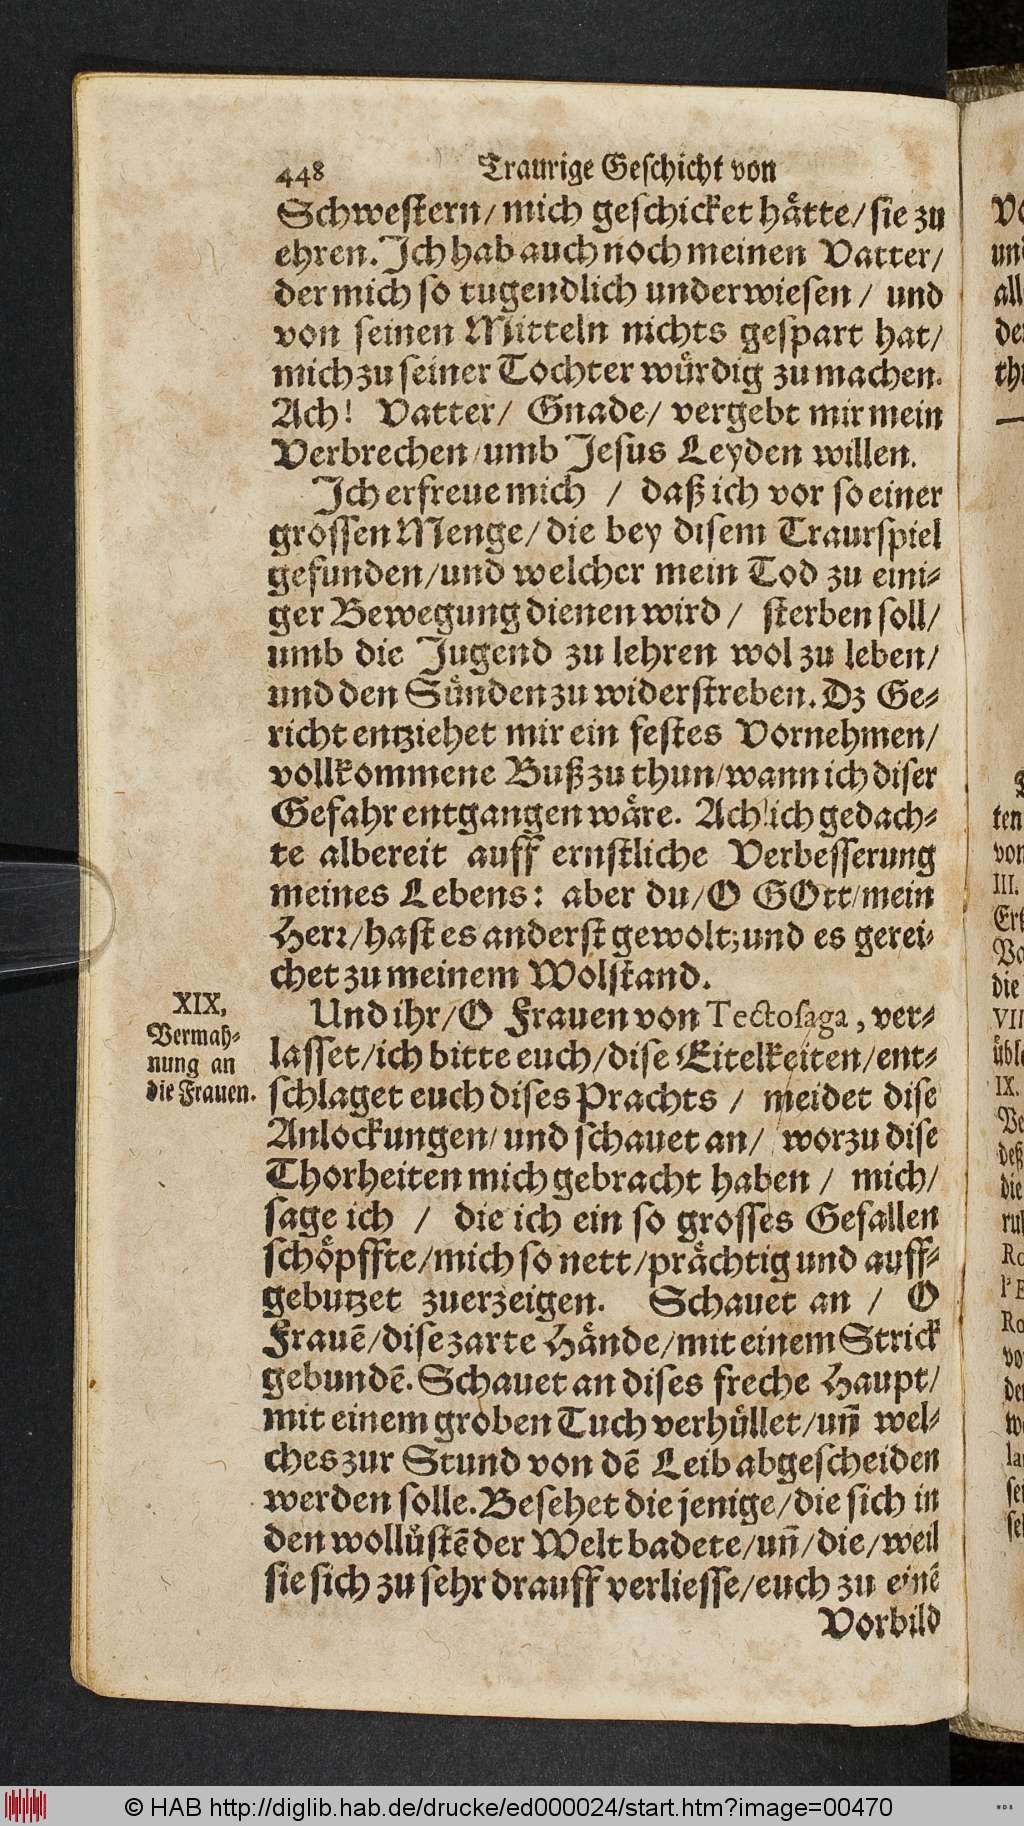 448 Traurige Geschicht von
Schwestern/ mich geschicket hätte/ sie zu
ehren. Ich hab auch noch meinen Vatter/
der mich so tugendlich underwiesen / und
von seinen Mitteln nichts gespart hat/
mich zu seiner Tochter würdig zu machen.
Ach! Vatter/ Gnade/ vergebt mir mein
Verbrechen/umb Jesus Leyden willen.
Ich erfreue mich / daß ich vor so einer
grossen Menge/ die bey disem Traurspiel
gefunden/und welcher mein Tod zu eini-
ger Bewegung dienen wird / sterben soll/
umb die Jugend zu lehren wol zu leben/
und den Sünden zu widerstreben. Dz Ge-
richt entziehet mir ein festes Vornehmen/
vollkommene Buß zu thun/wann ich diser
Gefahr entgangen wäre. Ach! ich gedach-
te albereit auff ernstliche Verbesserung
meines Lebens: aber du/O GOtt/mein
Herr/hast es anderst gewolt; und es gerei-
chet zu meinem Wolstand.
XIX,
Vermah-
nung an
die Frauen.
Und ihr/O Frauen von Tectosaga, ver-
lasset/ich bitte euch/dise Eitelkeiten/ent-
schlaget euch dises Prachts / meidet dise
Anlockungen/ und schauet an/ worzu dise
Thorheiten mich gebracht haben / mich/
sage ich / die ich ein so grosses Gefallen
schöpffte/mich so nett/prächtig und auff-
gebutzet zuerzeigen. Schauet an / O
Frauē/dise zarte Hände/mit einem Strick
gebundē. Schauet an dises freche Haupt/
mit einem groben Tuch verhüllet/uñ wel-
ches zur Stund von dē Leib abgescheiden
werden solle. Besehet die jenige/die sich in
den wollůstē der Welt badete/uñ/die/weil
sie sich zu sehr drauff verliesse/euch zu einē
Vorbild
un
all
de
th
ten
von
III.
Ert
die
VII
IX.
deß
die
Ro
Ro
vo
de
© HAB http://diglib.hab.de/drucke/ed000024/start.htm?image=00470